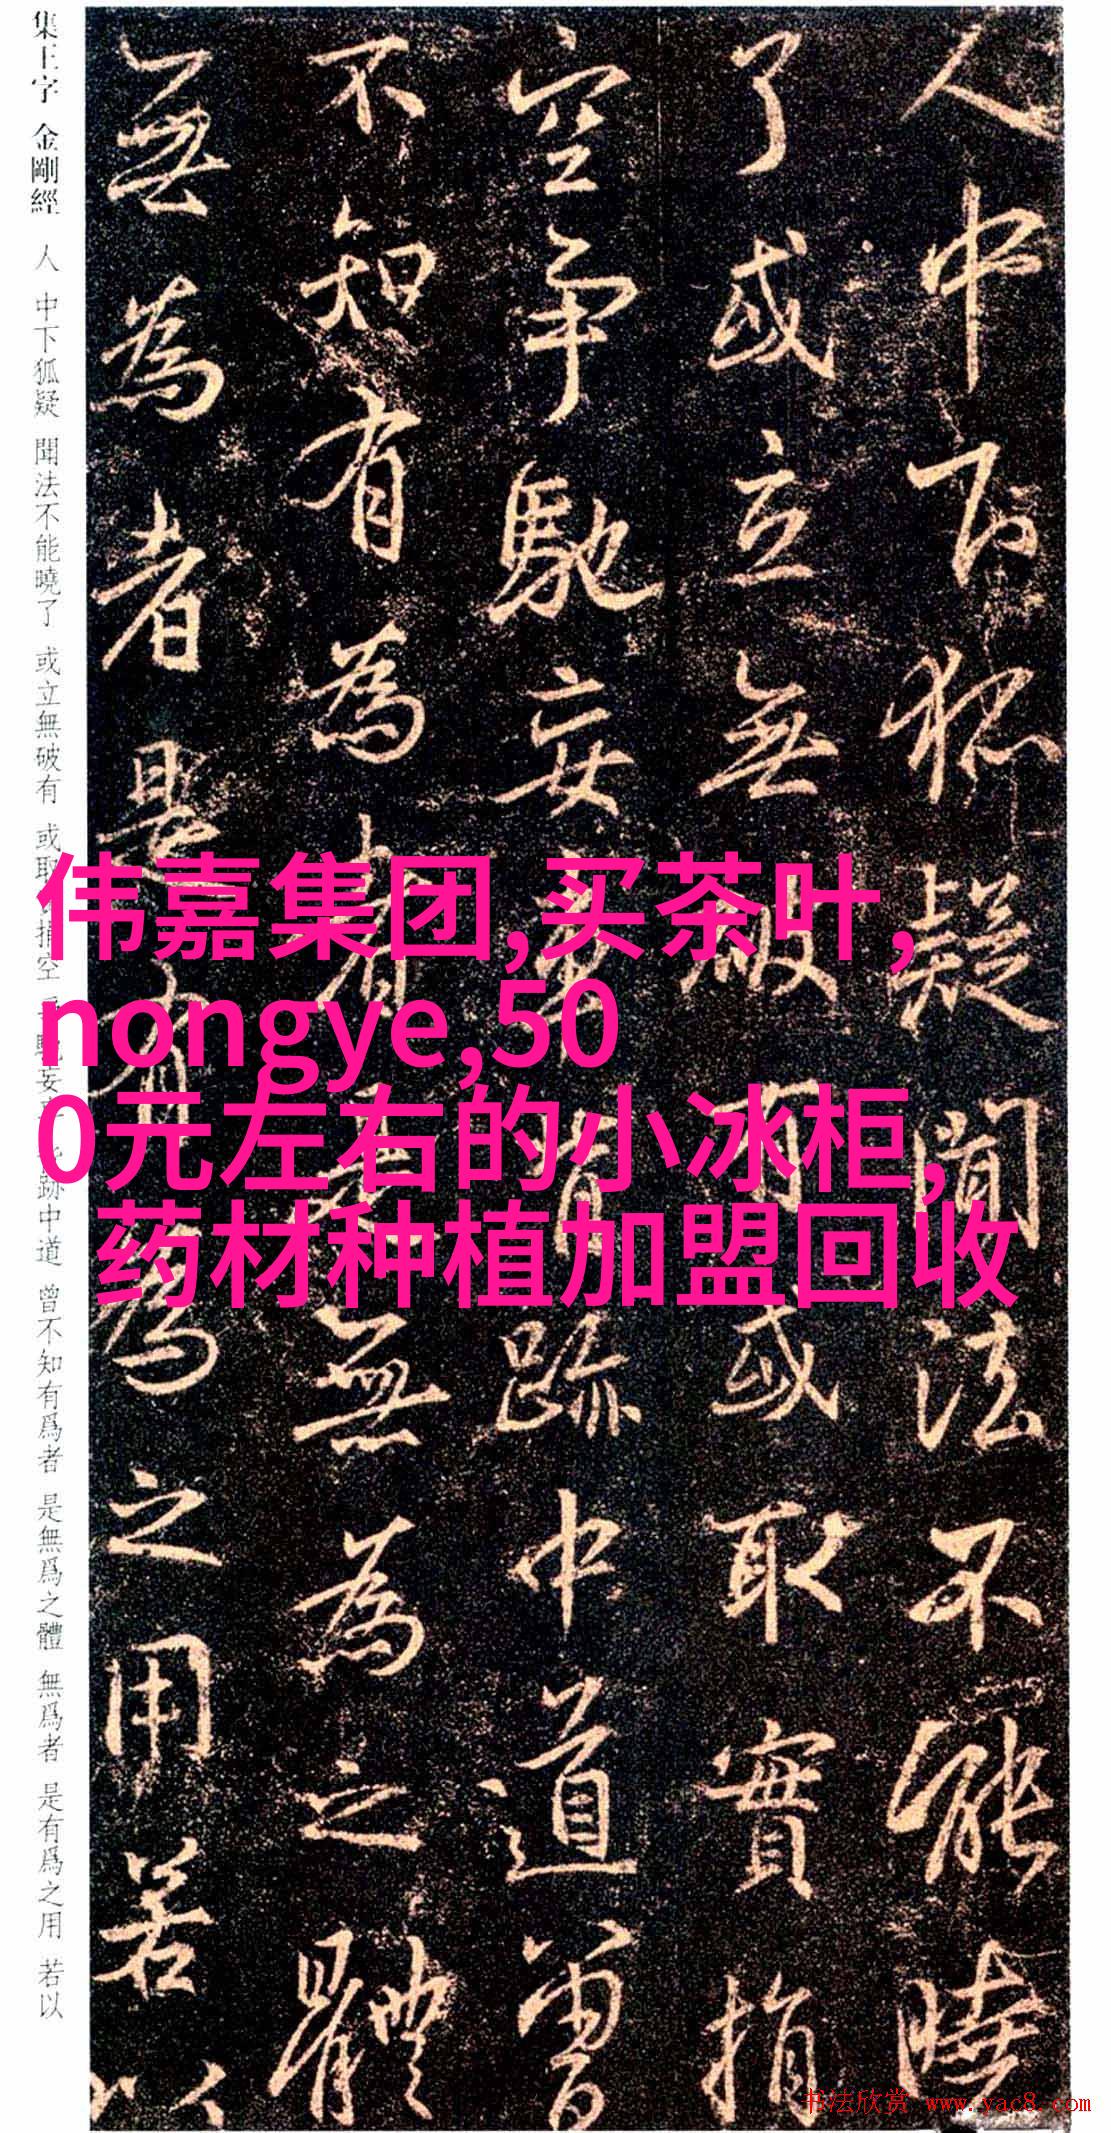 集王字 金剛經 人 中下狐疑 聞法不能曉了 或立無破有 或取 捐空 馳妄 跡中道 曾不知有爲者 是無爲之體 無爲者 是有爲之用 若以
人中下狐疑聞法不能曉
了或立無破有或取實捐
空爭馳妄情跡中道曾
不知有為者是無為之體
無為者是有為之用若以
伟嘉集团,买茶叶,
nongye,50
0元左右的小冰柜,
药材种植加盟回收
书法欣赏 www.yac8.com